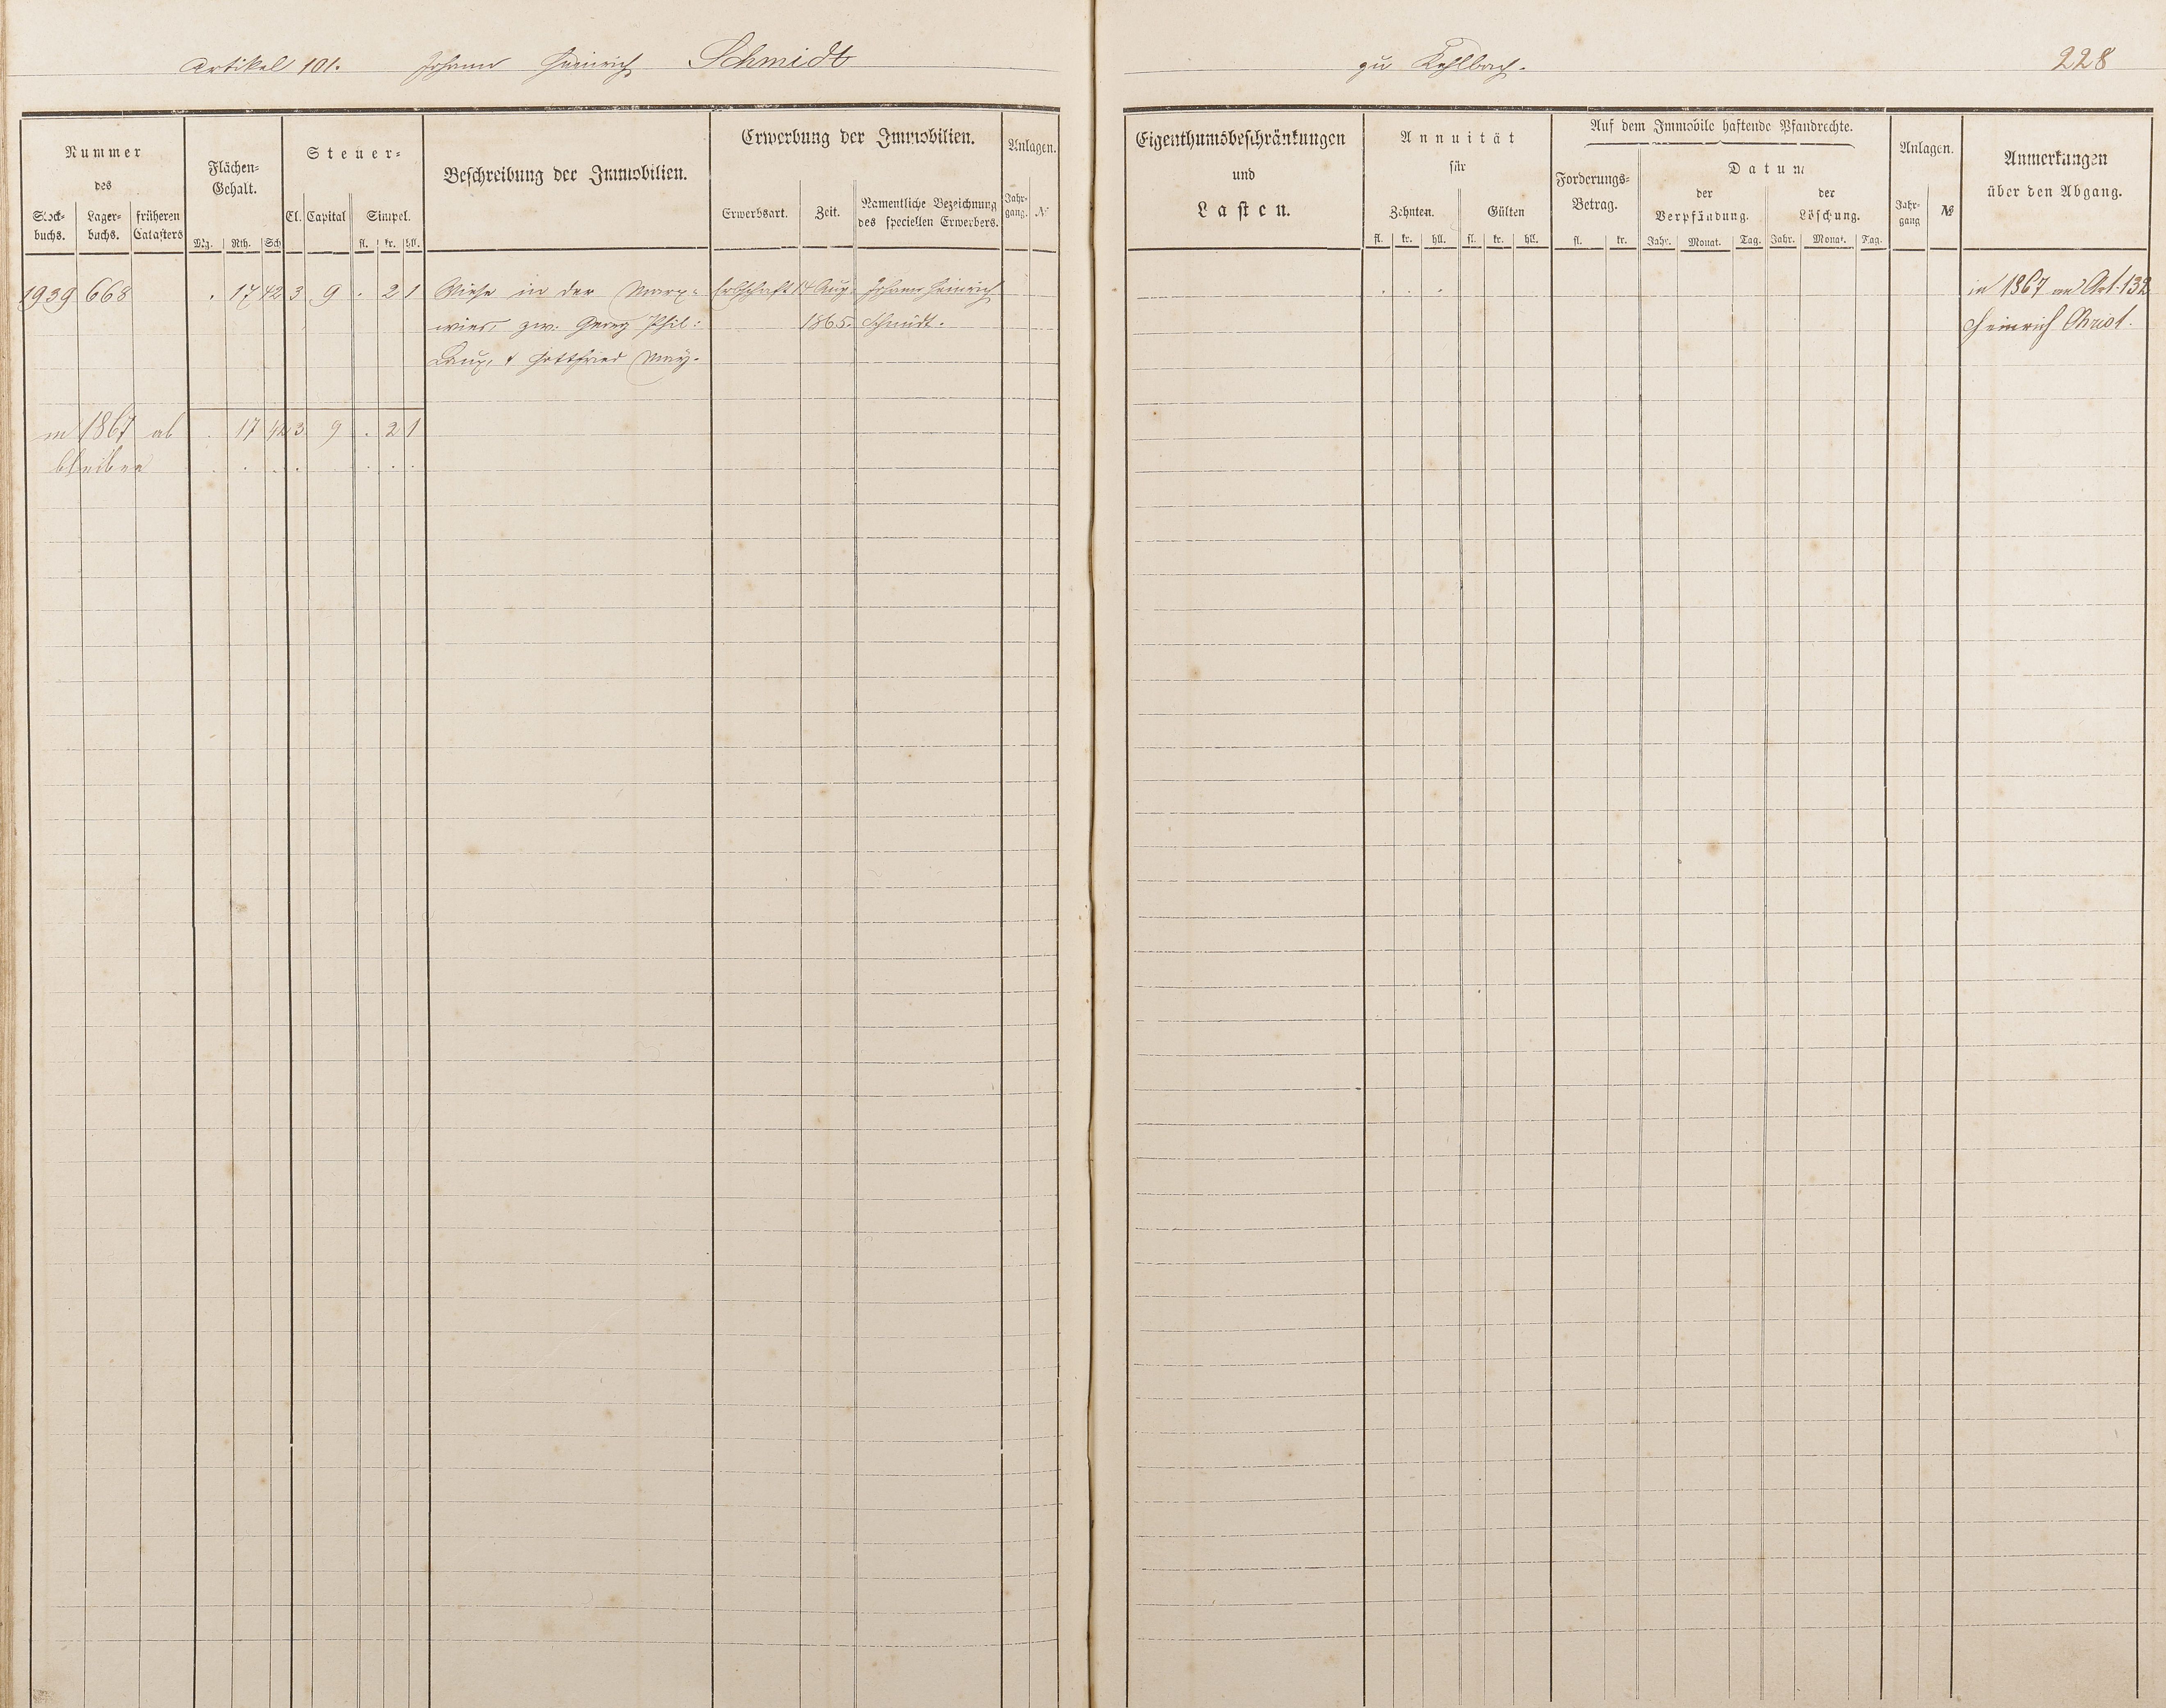 Artikel 101. Johann Heinrich Schmidt
zu Kehlbach.
228
Nummer
des
Stock-
buchs.
Lager-
buchs.
früheren
Catasters
Flächen-
Gehalt.
Mg. Rth. Sch
Steuer-
Cl. Capital Simpel.
fl. kr. hll.
Beschreibung der Immobilien.
Erwerbung der Immobilien.
Erwerbsart. Zeit.
Namentliche Bezeichnung
des speciellen Erwerbers.
Anlagen.
Jahr-
gang. №
Eigenthumsbeschränkungen
und
Lasten.
Annuität
für
Zehnten. Gülten
fl. kr. hll. fl. kr. hll.
Auf dem Immobile haftende Pfandrechte.
Forderungs-
Betrag.
fl. kr.
Datum
der
Verpfändung.
der
Löschung.
Jahr. Monat. Tag. Jahr. Monat. Tag.
Anlagen.
Jahr-
gang №
Anmerkungen
über den Abgang.
1939 668 . 17 42 3 9 . 2 1 Wiese in der Erbschaft 14 Aug. Johann Heinrich in 1867 an Art. 132
zw. Georg Phil: 1865. Schmidt. Heinrich Christ.
Gottfried May.
in 1867 ab . 17 42 3 9 . 2 1
bleiben . . . . . . .